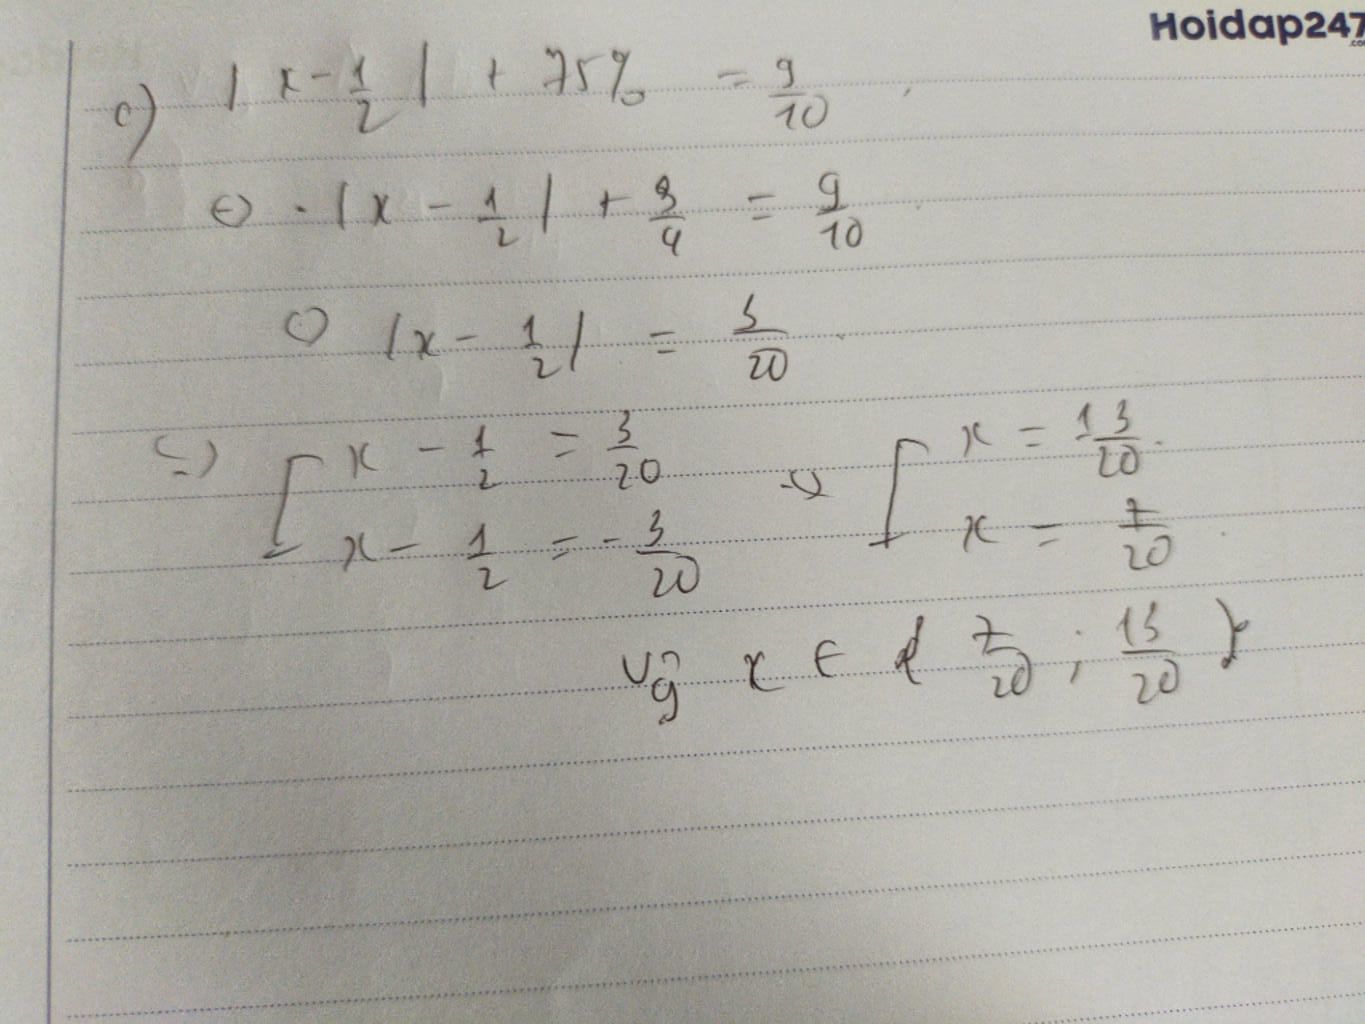 Hoidap247
.com
c) |x - 1/2| + 75% = 9/10
⇔ |x - 1/2| + 3/4 = 9/10
⇔ |x - 1/2| = 3/20
⇔ [ x - 1/2 = 3/20 ⇔ [ x = 13/20
x - 1/2 = -3/20 x = 7/20
Vậy x ∈ { 7/20 ; 13/20 }